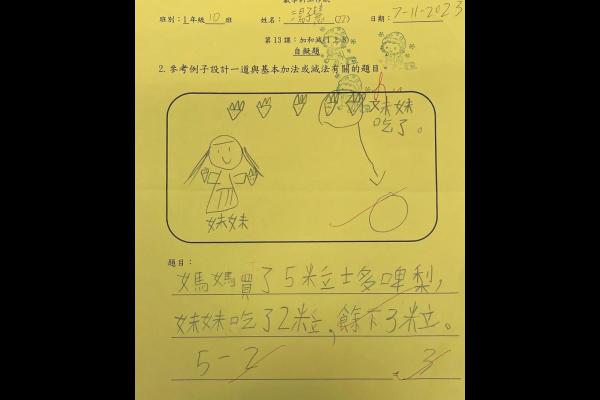 班別：1年級10班 姓名： (27) 日期：7-11-2023
第13課：加和減(1至8)
自擬題
2. 參考例子設計一道與基本加法或減法有關的題目。
妹妹
吃了。
妹妹
題目：
媽媽買了5粒士多啤梨,
妹妹吃了2粒,餘下3粒。
5-2
3